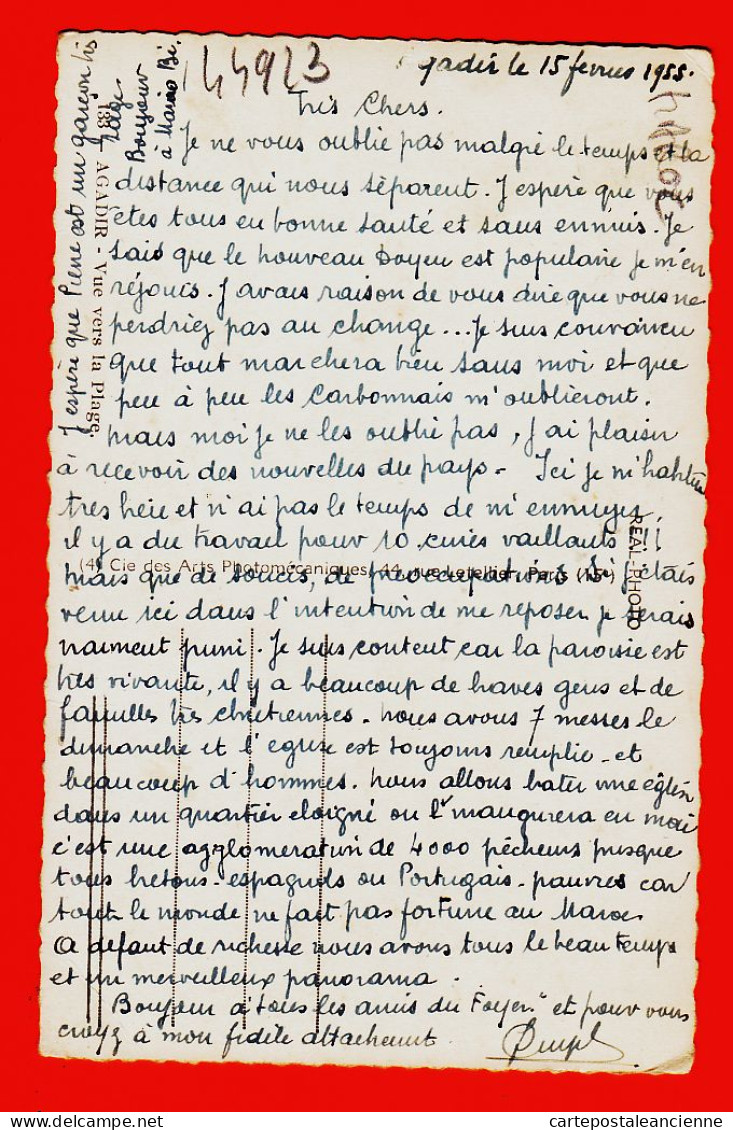 144923
Agadir le 15 fevrier 1955.
Très Chers.
Je ne vous oublie pas malgré le temps et la
distance qui nous séparent. J'espère que vous
êtes tous en bonne santé et sans ennuis. Je
sais que le nouveau Doyen est populaire je m'en
réjouis. J'avais raison de vous dire que vous ne
perdriez pas au change... Je suis convaincu
que tout marchera bien sans moi et que
peu à peu les Carbonnais m'oublieront.
Mais moi je ne les oubli pas, j'ai plaisir
à recevoir des nouvelles du pays - Ici je m'habitue
très bien et n'ai pas le temps de m'ennuyer
il y a du travail pour 10 curés vaillants !!!
mais que de soucis, de préoccupations Si j'étais
venu ici dans l'intention de me reposer je serais
vraiment puni. Je suis content car la paroisse est
très vivante, il y a beaucoup de braves gens et de
familles très chrétiennes. nous avons 7 messes le
dimanche et l'eglise est toujours remplie - et
beaucoup d'hommes. nous allons batir une église
dans un quartier eloigné on l'inaugurera en mai
c'est une agglomeration de 4000 pêcheurs presque
tous bretons - espagnols ou Portugais - pauvres car
tout le monde ne fait pas fortune au Maroc
A defaut de richesse nous avons tous le beau temps
et un merveilleux panorama.
Bonjour à tous les amis du Foyer" et pour vous
croyez à mon fidèle attachement
J'espère que Pierre est un garçon très
sage.
Bonjour
à
133 - AGADIR - Vue vers la Plage.
(4) Cie des Arts Photomécaniques, 44, rue Letellier, Paris (15e)
REAL-PHOTO
cartepostaleancienne
cartepostaleancienne.com